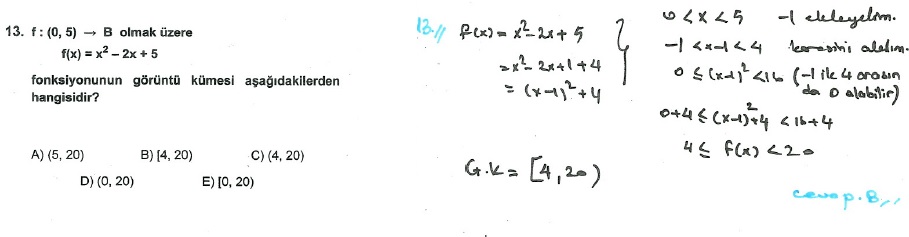 13. f : (0, 5) → B olmak üzere
f(x) = x² – 2x + 5
fonksiyonunun görüntü kümesi aşağıdakilerden
hangisidir?
A) (5, 20) B) [4, 20) C) (4, 20)
D) (0, 20) E) [0, 20)
13.// f(x) = x² - 2x + 5
= x² - 2x + 1 + 4
= (x-1)² + 4
G.K = [4, 20)
0 < x < 5 -1 ekleyelim.
-1 < x-1 < 4 karesini alalım.
0 ≤ (x-1)² < 16 (-1 ile 4 arasın
da 0 alabilir)
0+4 ≤ (x-1)²+4 < 16+4
4 ≤ f(x) < 20
cevap. B //